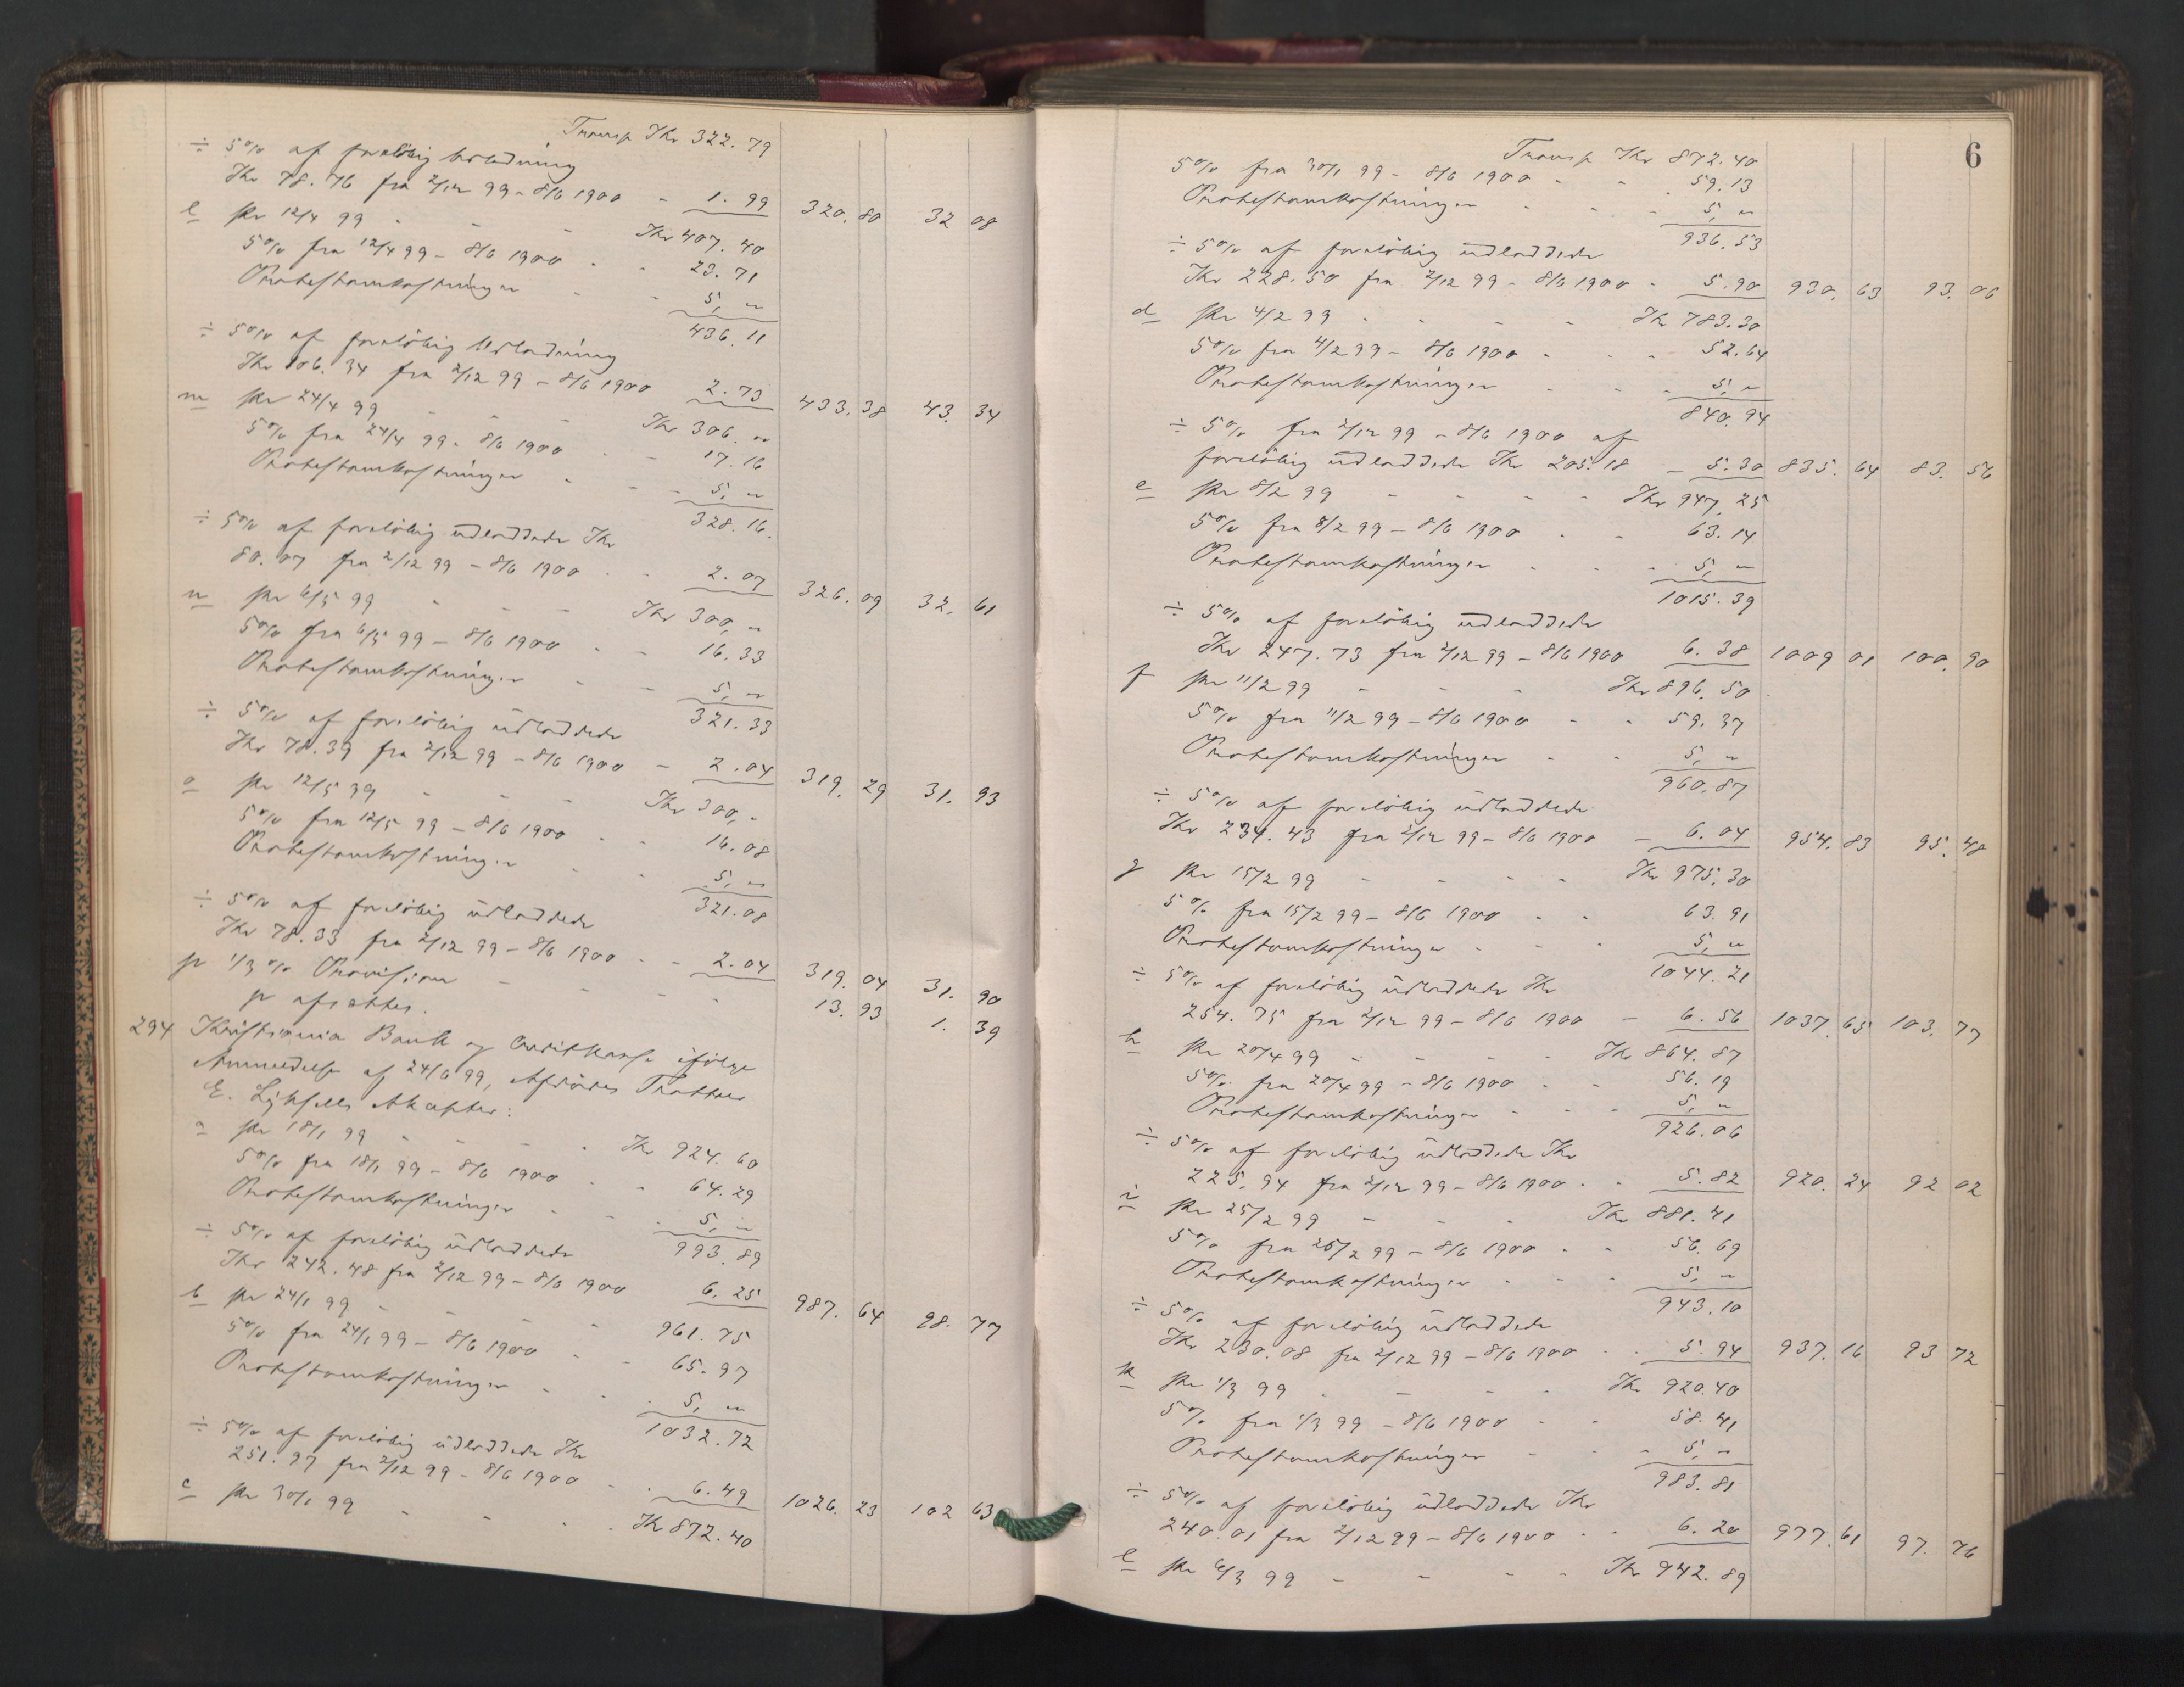 Transp Kr 322.79
÷ 5% af foreløbig Udlodning
Kr 78.76 fra 2/12 99 - 8/6 1900 - 1.99 320.80 32 08
l pr 12/4 99 - - - Kr 407.40
5% fra 12/4 99 - 8/6 1900 - - 23.71
Protestomkostninger - - 5, "
436.11
÷ 5% af foreløbig Udlodning
Kr 106.34 fra 2/12 99 - 8/6 1900 2.73 433.38 43.34
m pr 24/4 99 - - - Kr 306. "
5% fra 24/4 99 - 8/6 1900 - - 17.16
Protestomkostninger - - - 5, "
328.16.
÷ 5% af foreløbig udloddede Kr
80.07 fra 2/12 99 - 8/6 1900 - - 2.07 326.09 32.61
n pr 6/5 99 - - - Kr 300, "
5% fra 6/5 99 - 8/6 1900 - - 16.33
Protestomkostninger - - 5, "
321.33
÷ 5% af foreløbig udloddede
Kr 78.39 fra 2/12 99 - 8/6 1900 - 2.04 319.29 31.93
o pr 12/5 99 - - - Kr 300, -
5% fra 12/5 99 - 8/6 1900 - - 16.08
Protestomkostninger - - 5, "
321.08
÷ 5% af foreløbig udloddede
Kr 78.33 fra 2/12 99 - 8/6 1900 - - 2.04 319.04 31.90
p 1/3 % Provision - - - - 13.93 1.39
p afsættes.
294 Kristiania Bank og Creditkasse ifølge
Anmeldelse af 24/6 99, Tratter
E. Lyksells Akcepter:
a pr 18/1 99 - - - - Kr 924.60
5% fra 18/1 99 - 8/6 1900 - - 64.29
Protestomkostninger - - - 5, "
993.89
÷ 5% af foreløbig udloddede
Kr 242.48 fra 2/12 99 - 8/6 1900 6.25 987.64 98.77
b pr 24/1 99 - - - - 961.75
5% fra 24/1 99 - 8/6 1900 - - 65.97
Protestomkostninger - - - 5, "
1032.72
÷ 5% af foreløbig udloddede Kr
251.97 fra 2/12 99 - 8/6 1900 - - 6.49 1026.23 102 63
c pr 30/1 99 - - - - Kr 872.40
6
Transp Kr 872.40
5% fra 30/1 99 - 8/6 1900 - - - 59.13
Protestomkostninger - - - - 5, "
936.53
÷ 5% af foreløbig udloddede
Kr 228.50 fra 2/12 99 - 8/6 1900 - 5.90 930.63 93.06
d pr 4/2 99 - - - - Kr 783.30
5% fra 4/2 99 - 8/6 1900 - - - 52.64
Protestomkostninger - - - 5, "
840.94
÷ 5% fra 2/12 99 - 8/6 1900 af
foreløbig udloddede Kr 205.18 - 5.30 835.64 83.56
e pr 8/2 99 - - - - Kr 947.25
5% fra 8/2 99 - 8/6 1900 - - 63.14
Protestomkostninger - - - 5, "
1015.39
÷ 5% af foreløbig udloddede
Kr 247.73 fra 2/12 99 - 8/6 1900 6.38 1009 01 100.90
f pr 11/2 99 - - - Kr 896.50
5% fra 11/2 99 - 8/6 1900 - - 59.37
Protestomkostninger - - 5, "
960.87
÷ 5% af foreløbig udloddede
Kr 234.43 fra 2/12 99 - 8/6 1900 - 6.04 954.83 95.48
g pr 15/2 99 - - - - Kr 975.30
5% fra 15/2 99 - 8/6 1900 - - 63.91
Protestomkostninger - - - 5, "
1044.21
÷ 5% af foreløbig udloddede Kr
254.75 fra 2/12 99 - 8/6 1900 - 6.56 1037.65 103.77
h pr 20/4 99 - - - - Kr 864.87
5% fra 20/4 99 - 8/6 1900 - - 56.19
Protestomkostninger - - - 5, "
926.06
÷ 5% af foreløbig udloddede Kr
225.94 fra 2/12 99 - 8/6 1900 - - 5.82 920.24 92 02
i pr 25/2 99 - - - Kr 881.41
5% fra 25/2 99 - 8/6 1900 - - 56.69
Protestomkostninger - - - 5, "
943.10
÷ 5% af foreløbig udloddede
Kr 230.08 fra 2/12 99 - 8/6 1900 - - 5.94 937.16 93 72
k pr 1/3 99 - - - - Kr 920.40
5% fra 1/3 99 - 8/6 1900 - - 58.41
Protestomkostninger - - - 5, "
983.81
÷ 5% af foreløbig udloddede Kr
240.01 fra 2/12 99 - 8/6 1900 - - 6.20 977.61 97.76
l pr 6/3 99 - - - - Kr 942.89